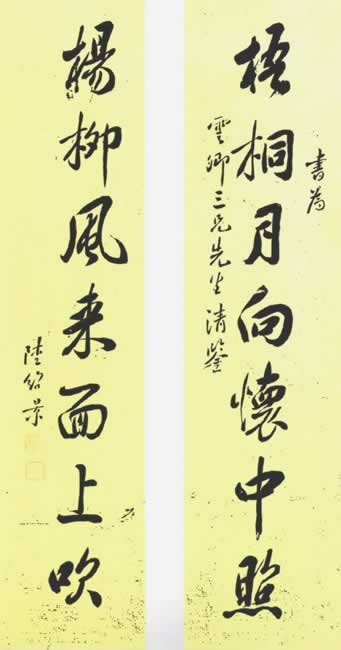 書為
梧桐月向懷中照
雲卿三兄先生清鑒
楊柳風来面上吹
陸紹景